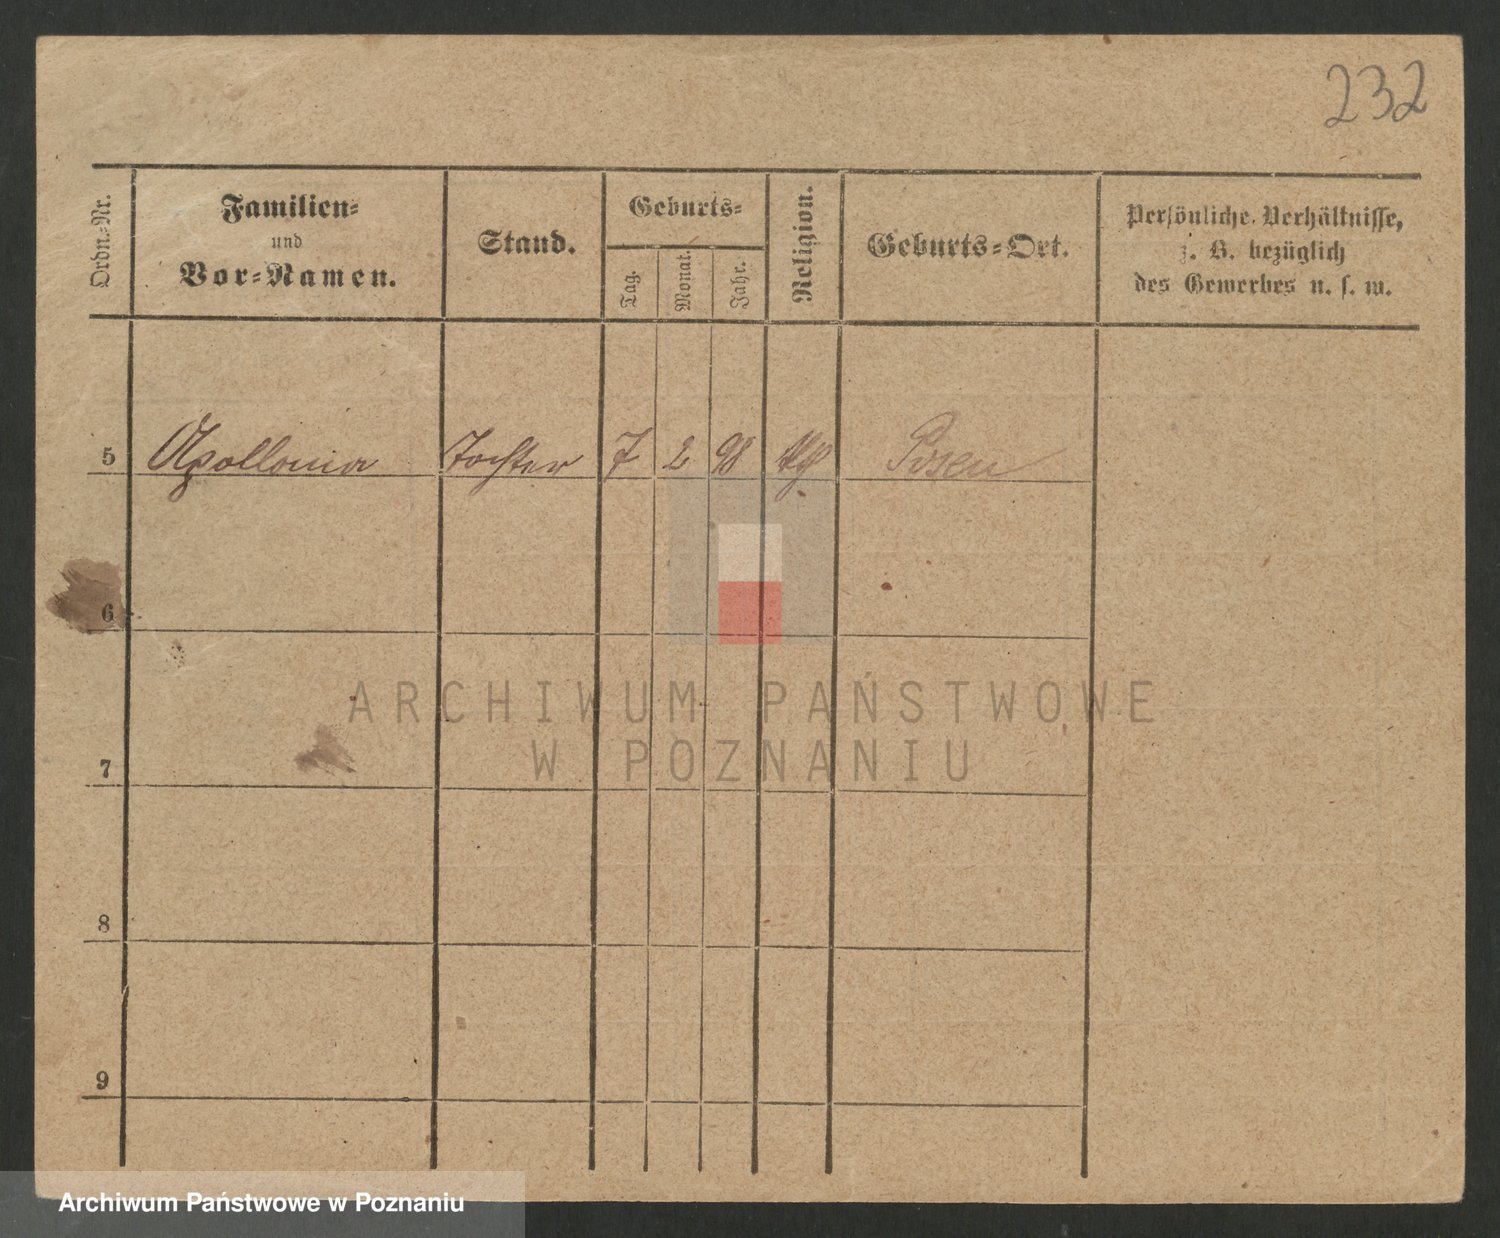 232
Ordn.-Nr.
Familien-
und
Vor-Namen.
Stand.
Geburts-
Tag.
Monat.
Jahr.
Religion.
Geburts-Ort.
Persönliche Verhältnisse,
z. B. bezüglich
des Gewerbes u. s. w.
5 Apollonia Tochter 7 2 98 Posen
6
ARCHIWUM PAŃSTWOWE
W POZNANIU
7
8
9
Archiwum Państwowe w Poznaniu